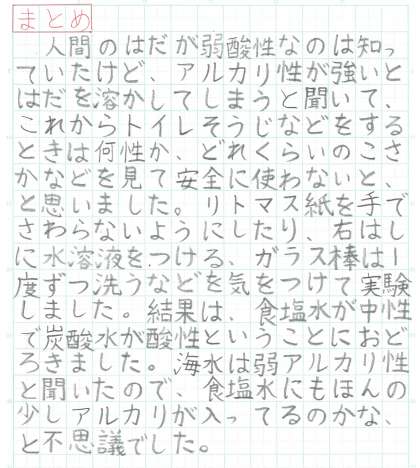 まとめ
人間のはだが弱酸性なのは知っ
ていたけど、アルカリ性が強いと
はだを溶かしてしまうと聞いて、
これからトイレそうじなどをする
ときは何性か、どれくらいのこさ
かなどを見て安全に使わないと、
と思いました。リトマス紙を手で
さわらないようにしたり、右はし
に水溶液をつける、ガラス棒は1
度ずつ洗うなどを気をつけて実験
しました。結果は、食塩水が中性
で炭酸水が酸性ということにおど
ろきました。海水は弱アルカリ性
と聞いたので、食塩水にもほんの
少しアルカリが入ってるのかな、
と不思議でした。